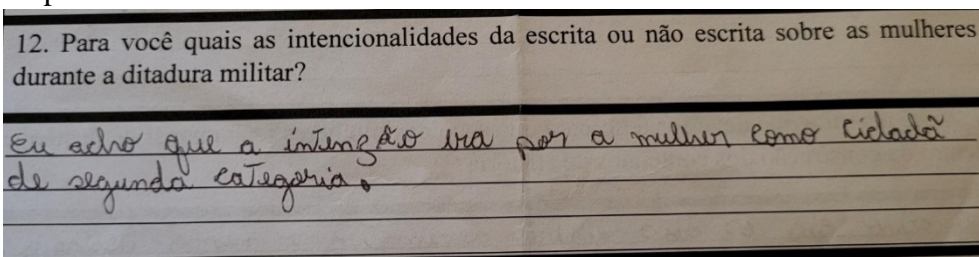 12. Para você quais as intencionalidades da escrita ou não escrita sobre as mulheres
durante a ditadura militar?
Eu acho que a intenção era por a mulher como cidadã
de segunda categoria.